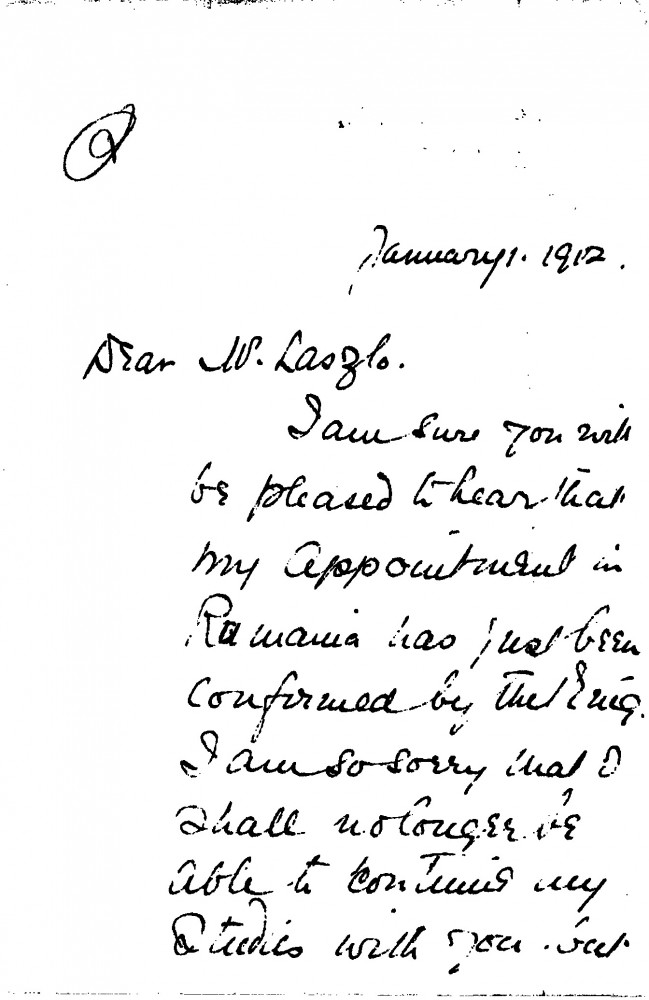 January 1. 1912.
Dear Mr. Laszlo.
I am sure you will
be pleased to hear that
my appointment in
Rumania has just been
confirmed by the King.
I am so sorry that I
shall no longer be
able to continue my
Studies with you but